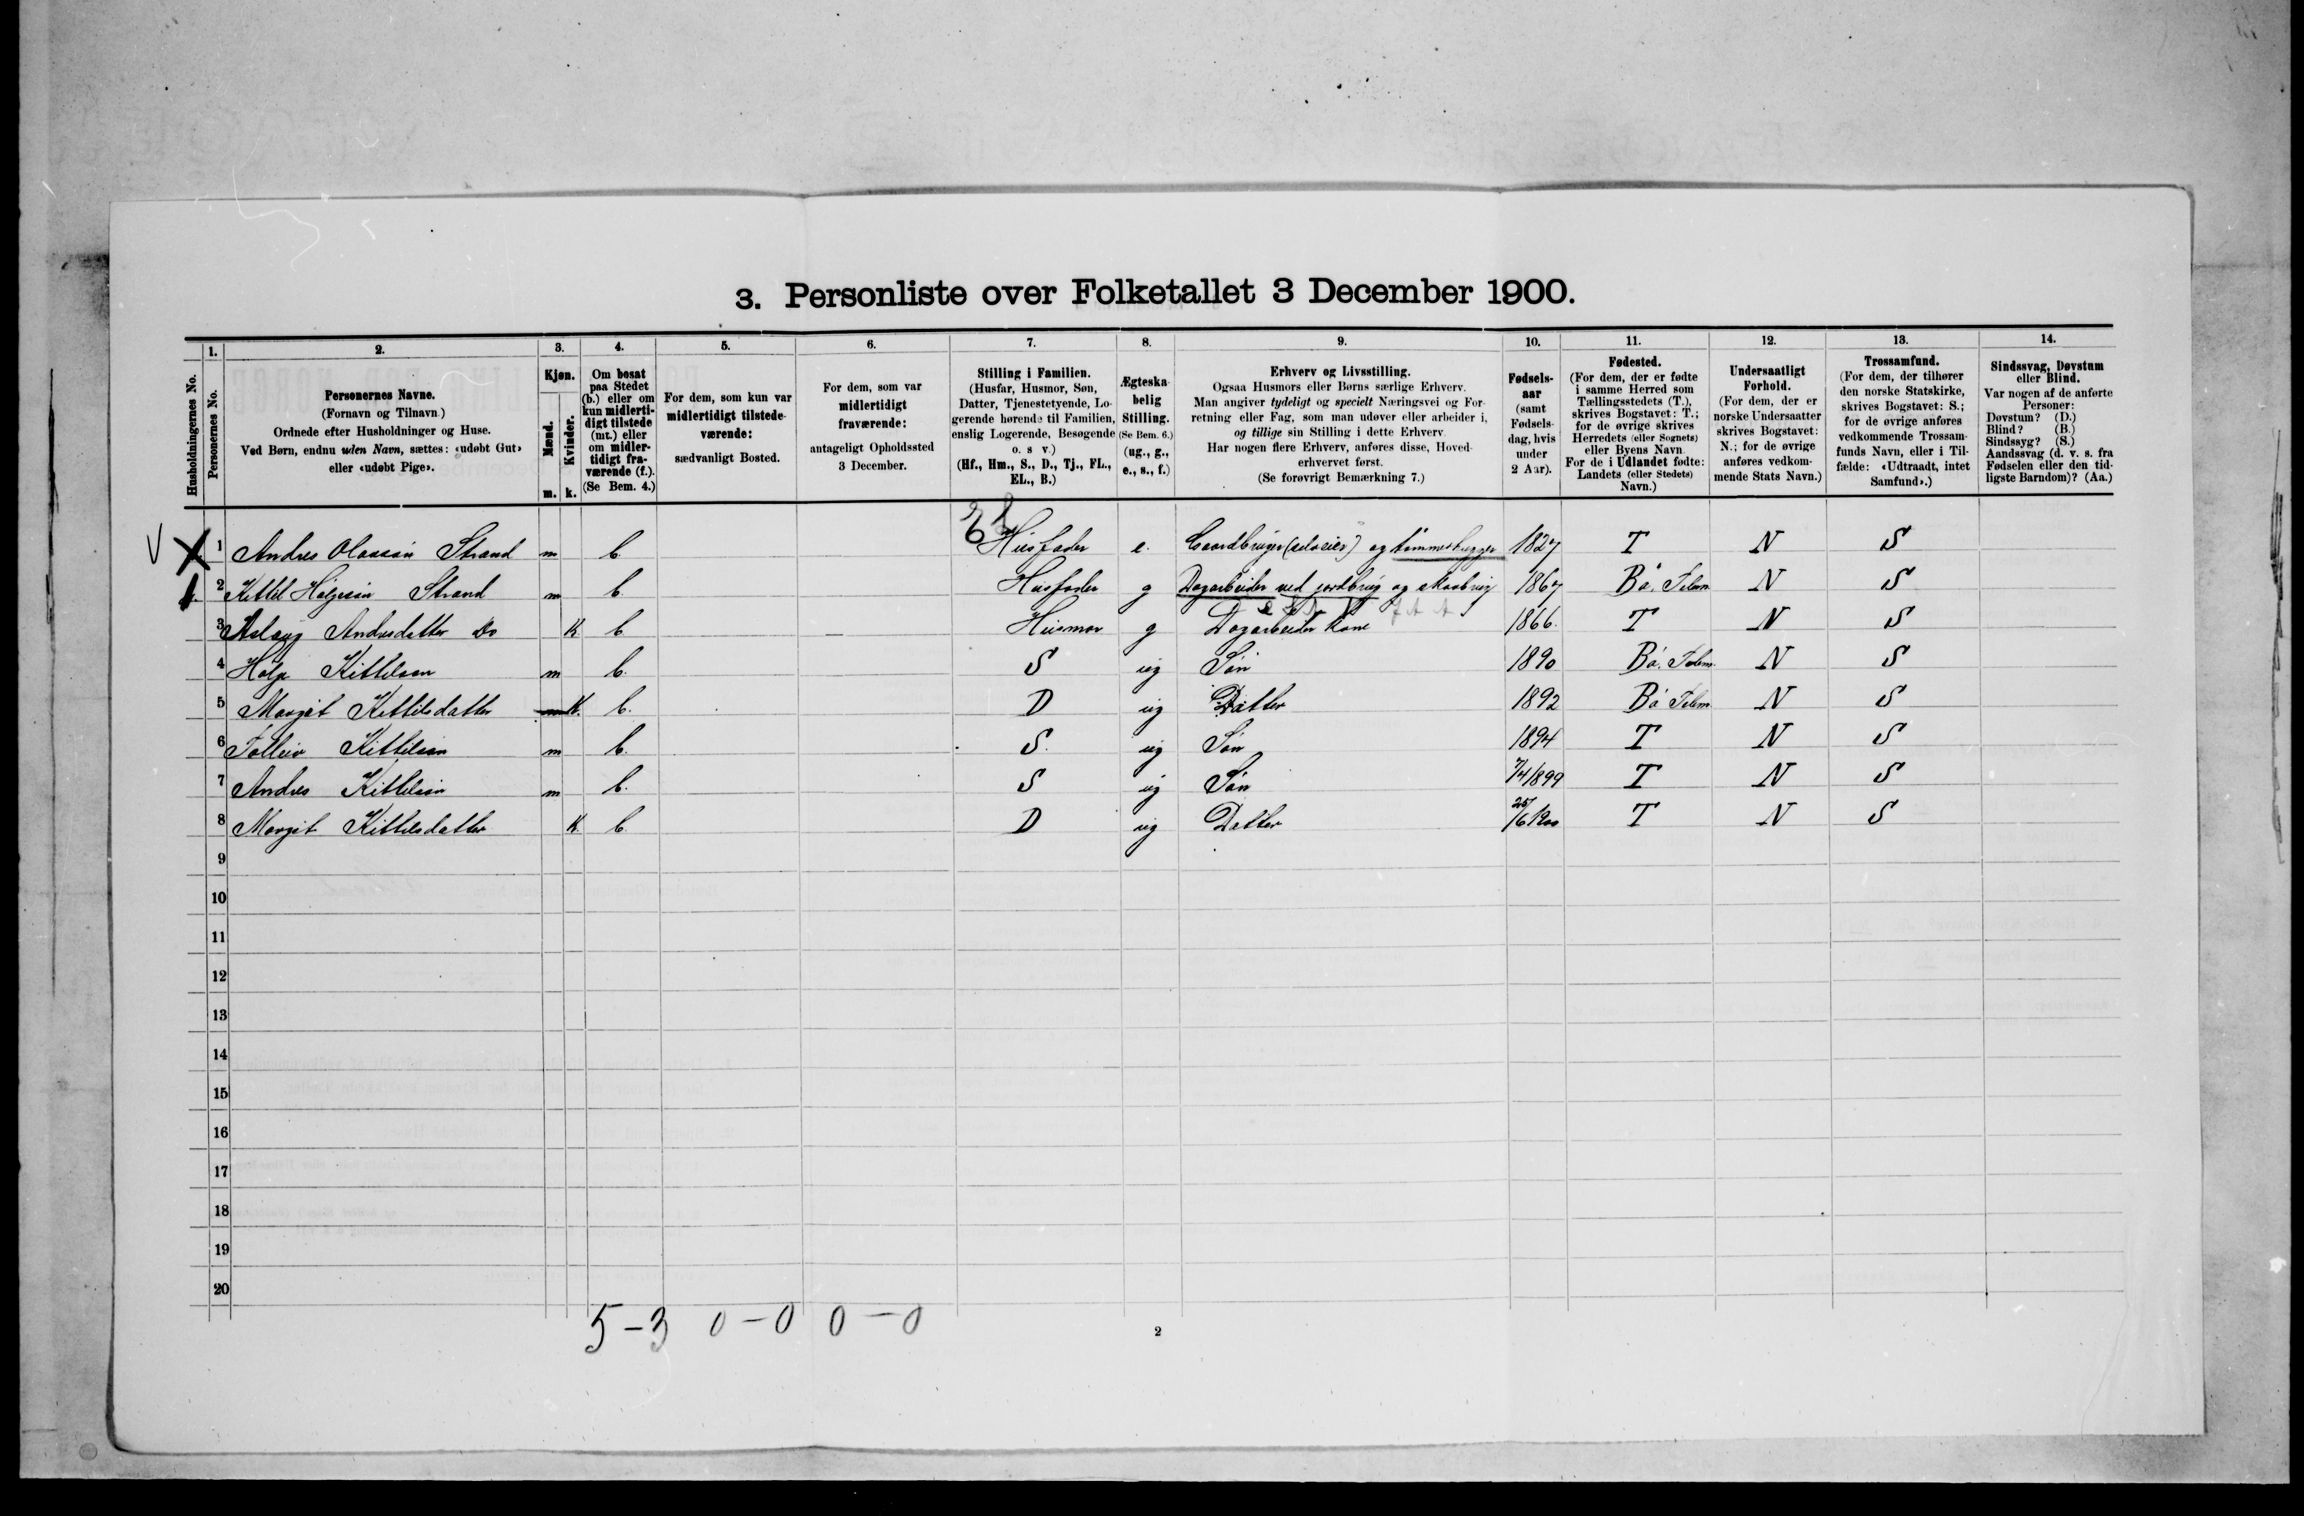 3. Personliste over Folketallet 3 December 1900.
1. 2. 3. 4. 5. 6. 7. 8. 9. 10. 11. 12. 13. 14.
Husholdningernes No.
Personernes No.
Personernes Navne.
(Fornavn og Tilnavn.)
Ordnede efter Husholdninger og Huse.
Ved Børn, endnu uden Navn, sættes: «udøbt Gut»
eller «udøbt Pige».
Kjøn.
Mænd.
Kvinder.
m. k.
Om bosat
paa Stedet
(b.) eller om
kun midlerti-
digt tilstede
(mt.) eller
om midler-
tidigt fra-
værende (f.).
(Se Bem. 4.)
For dem, som kun var
midlertidigt tilstede-
værende:
sædvanligt Bosted.
For dem, som var
midlertidigt
fraværende:
antageligt Opholdssted
3 December.
Stilling i Familien.
(Husfar, Husmor, Søn,
Datter, Tjenestetyende, Lo-
gerende hørende til Familien,
enslig Logerende, Besøgende
o. s v.)
(Hf., Hm., S., D., Tj., FL.,
EL., B.)
Ægteska-
belig
Stilling.
(Se Bem. 6.)
(ug., g.,
e., s., f.)
Erhverv og Livsstilling.
Ogsaa Husmors eller Børns særlige Erhverv.
Man angiver tydeligt og specielt Næringsvei og For-
retning eller Fag, som man udøver eller arbeider i,
og tillige sin Stilling i dette Erhverv.
Har nogen flere Erhverv, anføres disse, Hoved-
erhvervet først.
(Se forøvrigt Bemærkning 7.)
Fødsels-
aar
(samt
Fødsels-
dag, hvis
under
2 Aar).
Fødested.
(For dem, der er fødte
i samme Herred som
Tællingsstedets (T.),
skrives Bogstavet: T.;
for de øvrige skrives
Herredets (eller Sognets)
eller Byens Navn.
For de i Udlandet fødte:
Landets (eller Stedets)
Navn.)
Undersaatligt
Forhold.
(For dem, der er
norske Undersaatter
skrives Bogstavet:
N.; for de øvrige
anføres vedkom-
mende Stats Navn.)
Trossamfund.
(For dem, der tilhører
den norske Statskirke,
skrives Bogstavet: S.;
for de øvrige anføres
vedkommende Trossam-
funds Navn, eller i Til-
fælde: «Udtraadt, intet
Samfund».)
Sindssvag, Døvstum
eller Blind.
Var nogen af de anførte
Personer:
Døvstum? (D.)
Blind? (B.)
Sindssyg? (S.)
Aandssvag (d. v. s. fra
Fødselen eller den tid-
ligste Barndom)? (Aa.)
El
1 Andres Olausøn Strand m b. Husfader e. Gaardbruger (selveier) og tømmerhugger 1827 T N S
2 Kittil Helgesøn Strand m b. Husfader g Dagarbeider ved jordbrug og skovbrug 1867 Bø, Telem. N S
3 Aslaug Andresdatter Do K b Husmor g Dagarbeider Kone 1866. T N S
4 Helge Kittilsøn m b. S ug Søn 1890 Bø, Telem. N S
5 Margit Kittilsdatter m K. b. D ug Datter 1892 Bø Telem. N S
6 Tolleiv Kittilsøn m b. S. ug Søn 1894 T N S
7 Andres Kittilsøn m b. S ug Søn 7/4 1899 T N S
8 Margit Kittilsdatter K b. D ug Datter 25/6 1900 T N S
9
10
11
12
13
14
15
16
17
18
19
20
5 – 3 0 – 0 0 – 0
2